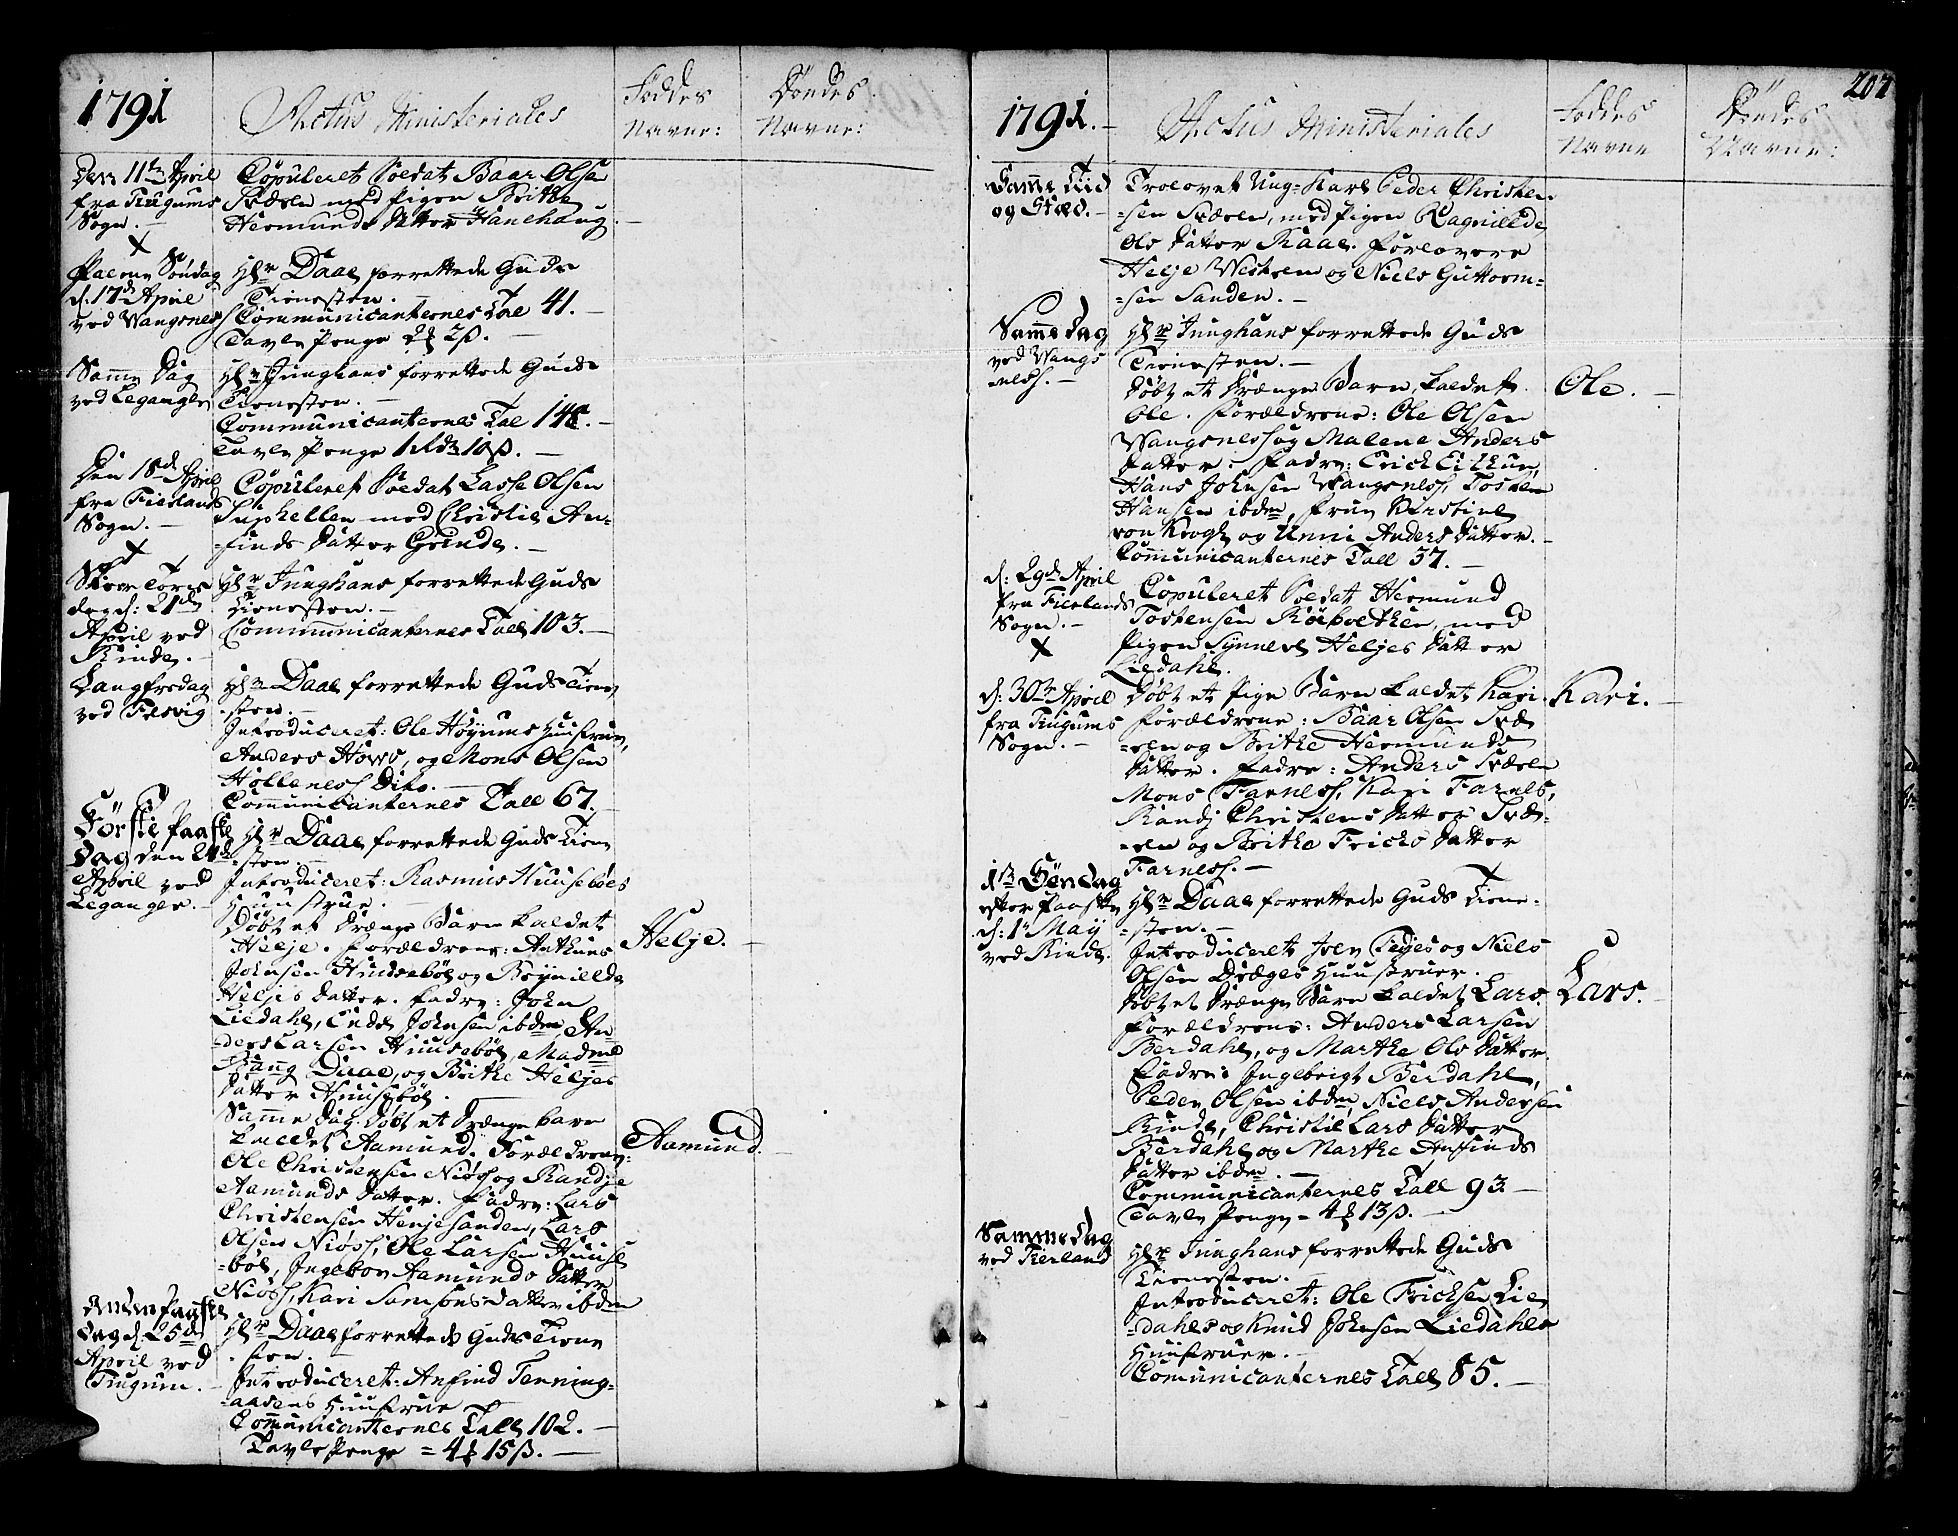 1791
Actus Ministeriales
Föddes
Navne:
Döndes
Navne:
Den 11te April
fra Tiugums
Sogn. –
Copuleret Soldat Baar Olsen
Sværen med Pigen Brithe
Hermunds Datter Hanehaug
Palme Söndag
d: 17de April
ved Wangsness
Hr. Daae forrettede Guds
Tienesten. –
Communicanternes Tal 41. –
Tavle Penge 2 ß. –
Samme Dag
ved Leganger
Hr. Junghans forrettede Guds
Tienesten. –
Communicanternes Tal –
Tavle Penge 1 10 ß. –
Den 18de April
fra Fierlands
Sogn. –
Copuleret Soldat Lasse Olsen
Suphellen med Christie An-
=finds Datter Grinde. –
Skier Tors
dag d: 21de
April ved
Rinde. –
Hr. Junghans forrettede Guds
Tienesten. –
Communicanternes Tall 103. –
Langfredag
ved Fresvig
Hr. Daae forrettede Guds Tiene
=sten. –
Introduceret: Ole Höyums Huustrue,
Anders Hows, og Mons Olsen
Holleness Dito. –
Communicanternes Tall 67. –
Förste Paaske
Dag den 24de
April ved
Leganger. –
Hr. Daae forrettede Guds Tiene
=sten. –
Introduceret: Rasmus Huuseböes
Huustrue. –
Döbt et Drænge Barn kaldet
Helje. Forældrene: Anthuns
Johnsen Huusebös og Rognillde
Heljes Datter. Fadre: John
Liedahl, Endre Johnsen ibdm An
=ders Larsen Huusebös, Madme
Bang Daae, og Brithe Heljes
Datter Huusebös. –
Helje. –
Samme Dag Döbt et Drænge barn
kaldet Aamund. Forældrene:
Ole Christensen Niöss og Randje
Aamunds Datter. Fadre: Lars
Christensen Henjesanden, Lars
Olsen Niöss, Ole Larsen Huuse
=böe, Ingebor Aamunds Datter
Niöss, Kari Samsons datter ibdm
Aamund. –
Anden Paaske
Dag d: 25de
April ved
Tiugum. –
Hr. Daae forrettede Guds Tiene
=sten. –
Introduceret: Anfind Tenning-
=aasens Huustrue
Communicanternes Tall 102. –
Tavle Penge = 4 15 ß. –
207
1791. –
Actus Ministeriales
Föddes
Navne
Döndes
Navne:
Samme Tiid
og Stæd. –
Trolovet Ung-Karl Peder Christen
=sen Sværen, med Pigen Ragnillde
Ols Datter Raae. Forlovere
Helje Westren og Niels Guttorm=
=sen Sanden. –
Samme Dag
ved Wangs
ness. –
Hr. Junghans forrettede Guds
Tienesten. –
Döbt et Drænge Barn kaldet
Ole. Forældrene: Ole Olsen
Wangsness og Malene Anders
Datter. Fadre: Erich
Hans Johnsen Wangsness, Tosten
Hansen ibdm, Frue Kirstine
von Krogh og Unni Anders Datter. –
Communicanternes Tall 37. –
Ole. –
d: 29de April
fra Fierlands
Sogn. –
Copuleret Soldat Hermund
Tostensen Röibotten, med
Pigen Synneve Heljes Datter
Liedahl.
d: 30te April
fra Tiugums
Sogn. –
Döbt et Pige Barn kaldet Kari.
Forældrene: Baar Olsen Svæ
=ren og Brithe Hermunds
Datter. Fadre: Anders Sværen
Mons Farness, Kari Farness,
Randj Christens Datter Svæ-
=ren og Brithe Erichs Datter
Farness. –
Kari. –
1te Söndag
efter Paaske
d: 1te May
ved Rinde.
Hr. Daae forrettede Guds Tiene-
=sten. –
Introduceret Joen Feyes og Niels
Olsen Dræges Huustruer.
Döbt et Drænge Barn kaldet Lars.
Forældrene: Anders Larsen
Berdahl, og Marthe Ols Datter.
Fadre: Ingebrigt Berdahl,
Peder Olsen ibdm, Niels Andersen
Rinde, Christie Lars Datter
Berdahl og Marthe Anfinds
Datter ibdm. –
Communicanternes Tall 93. –
Tavle Penge = 4 13 ß. –
Lars. –
Samme dag
ved Fierland
Hr. Junghans forrettede Guds
Tienesten. –
Introduceret: Ole Erichsen Lie
=dahls og Knud Johnsen Liedahls
Huustruer. –
Communicanternes Tall 85. –